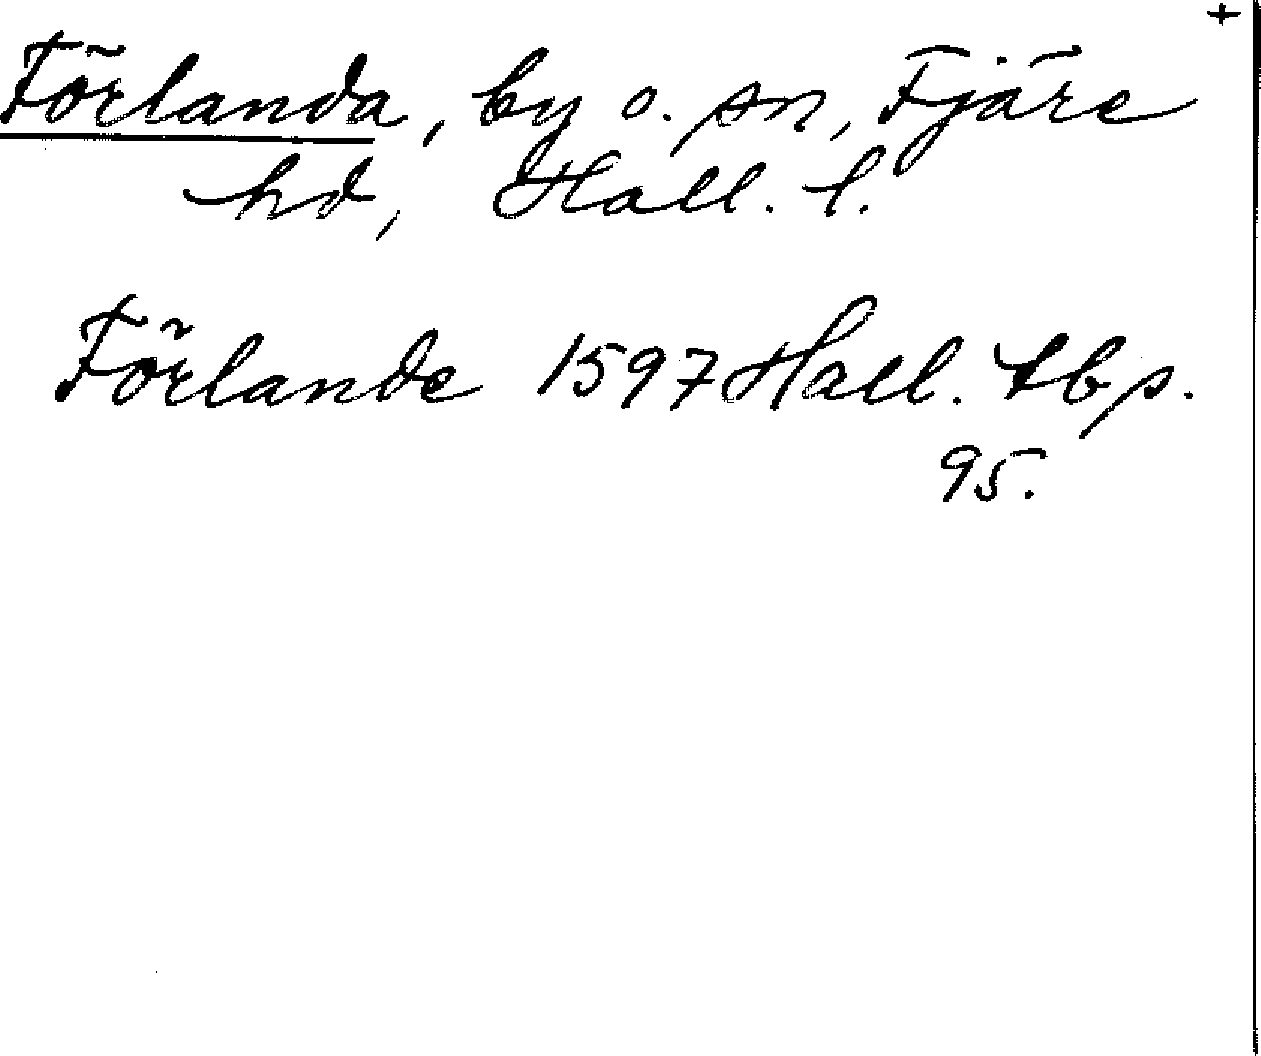 +
Förlanda, by o. sn, Fjäre
hd, Hall. l.
Förlande 1597 Hall. tbp.
95.